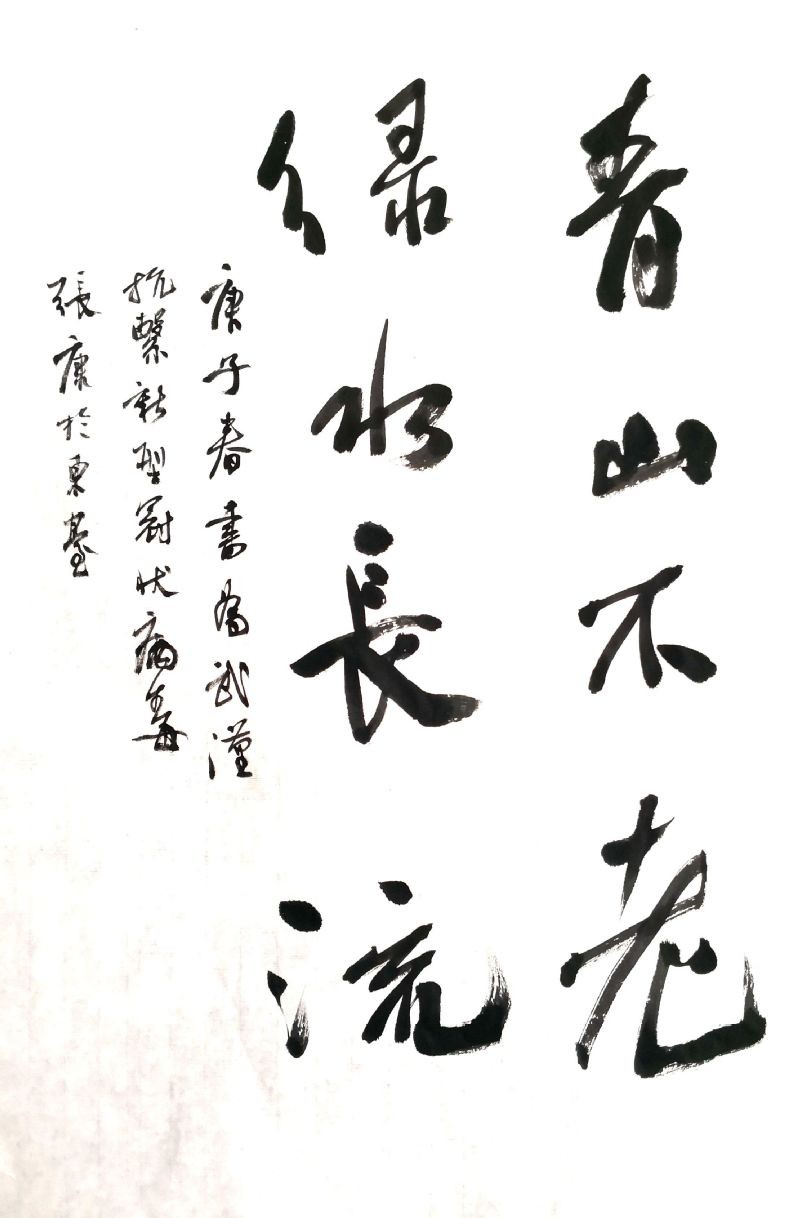 青山不老
绿水長流
庚子春書為武漢
抗擊新型冠狀病毒
張康於東臺